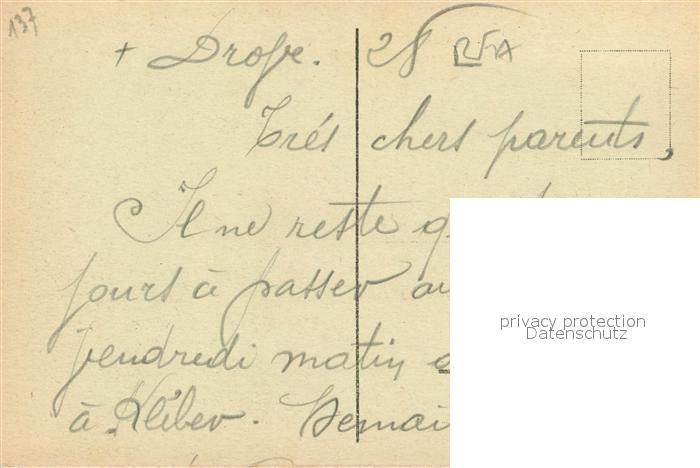 137
+ Drope. 28 RFA
Trés chers parents,
Il ne reste
jours à passer au
vendredi matin
à Kléber. Demai
privacy protection
Datenschutz